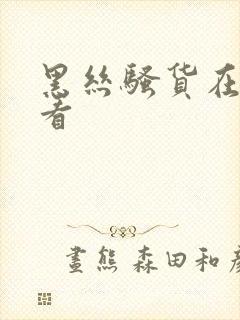 黑丝骚货在
看
畫熊 森田和彦